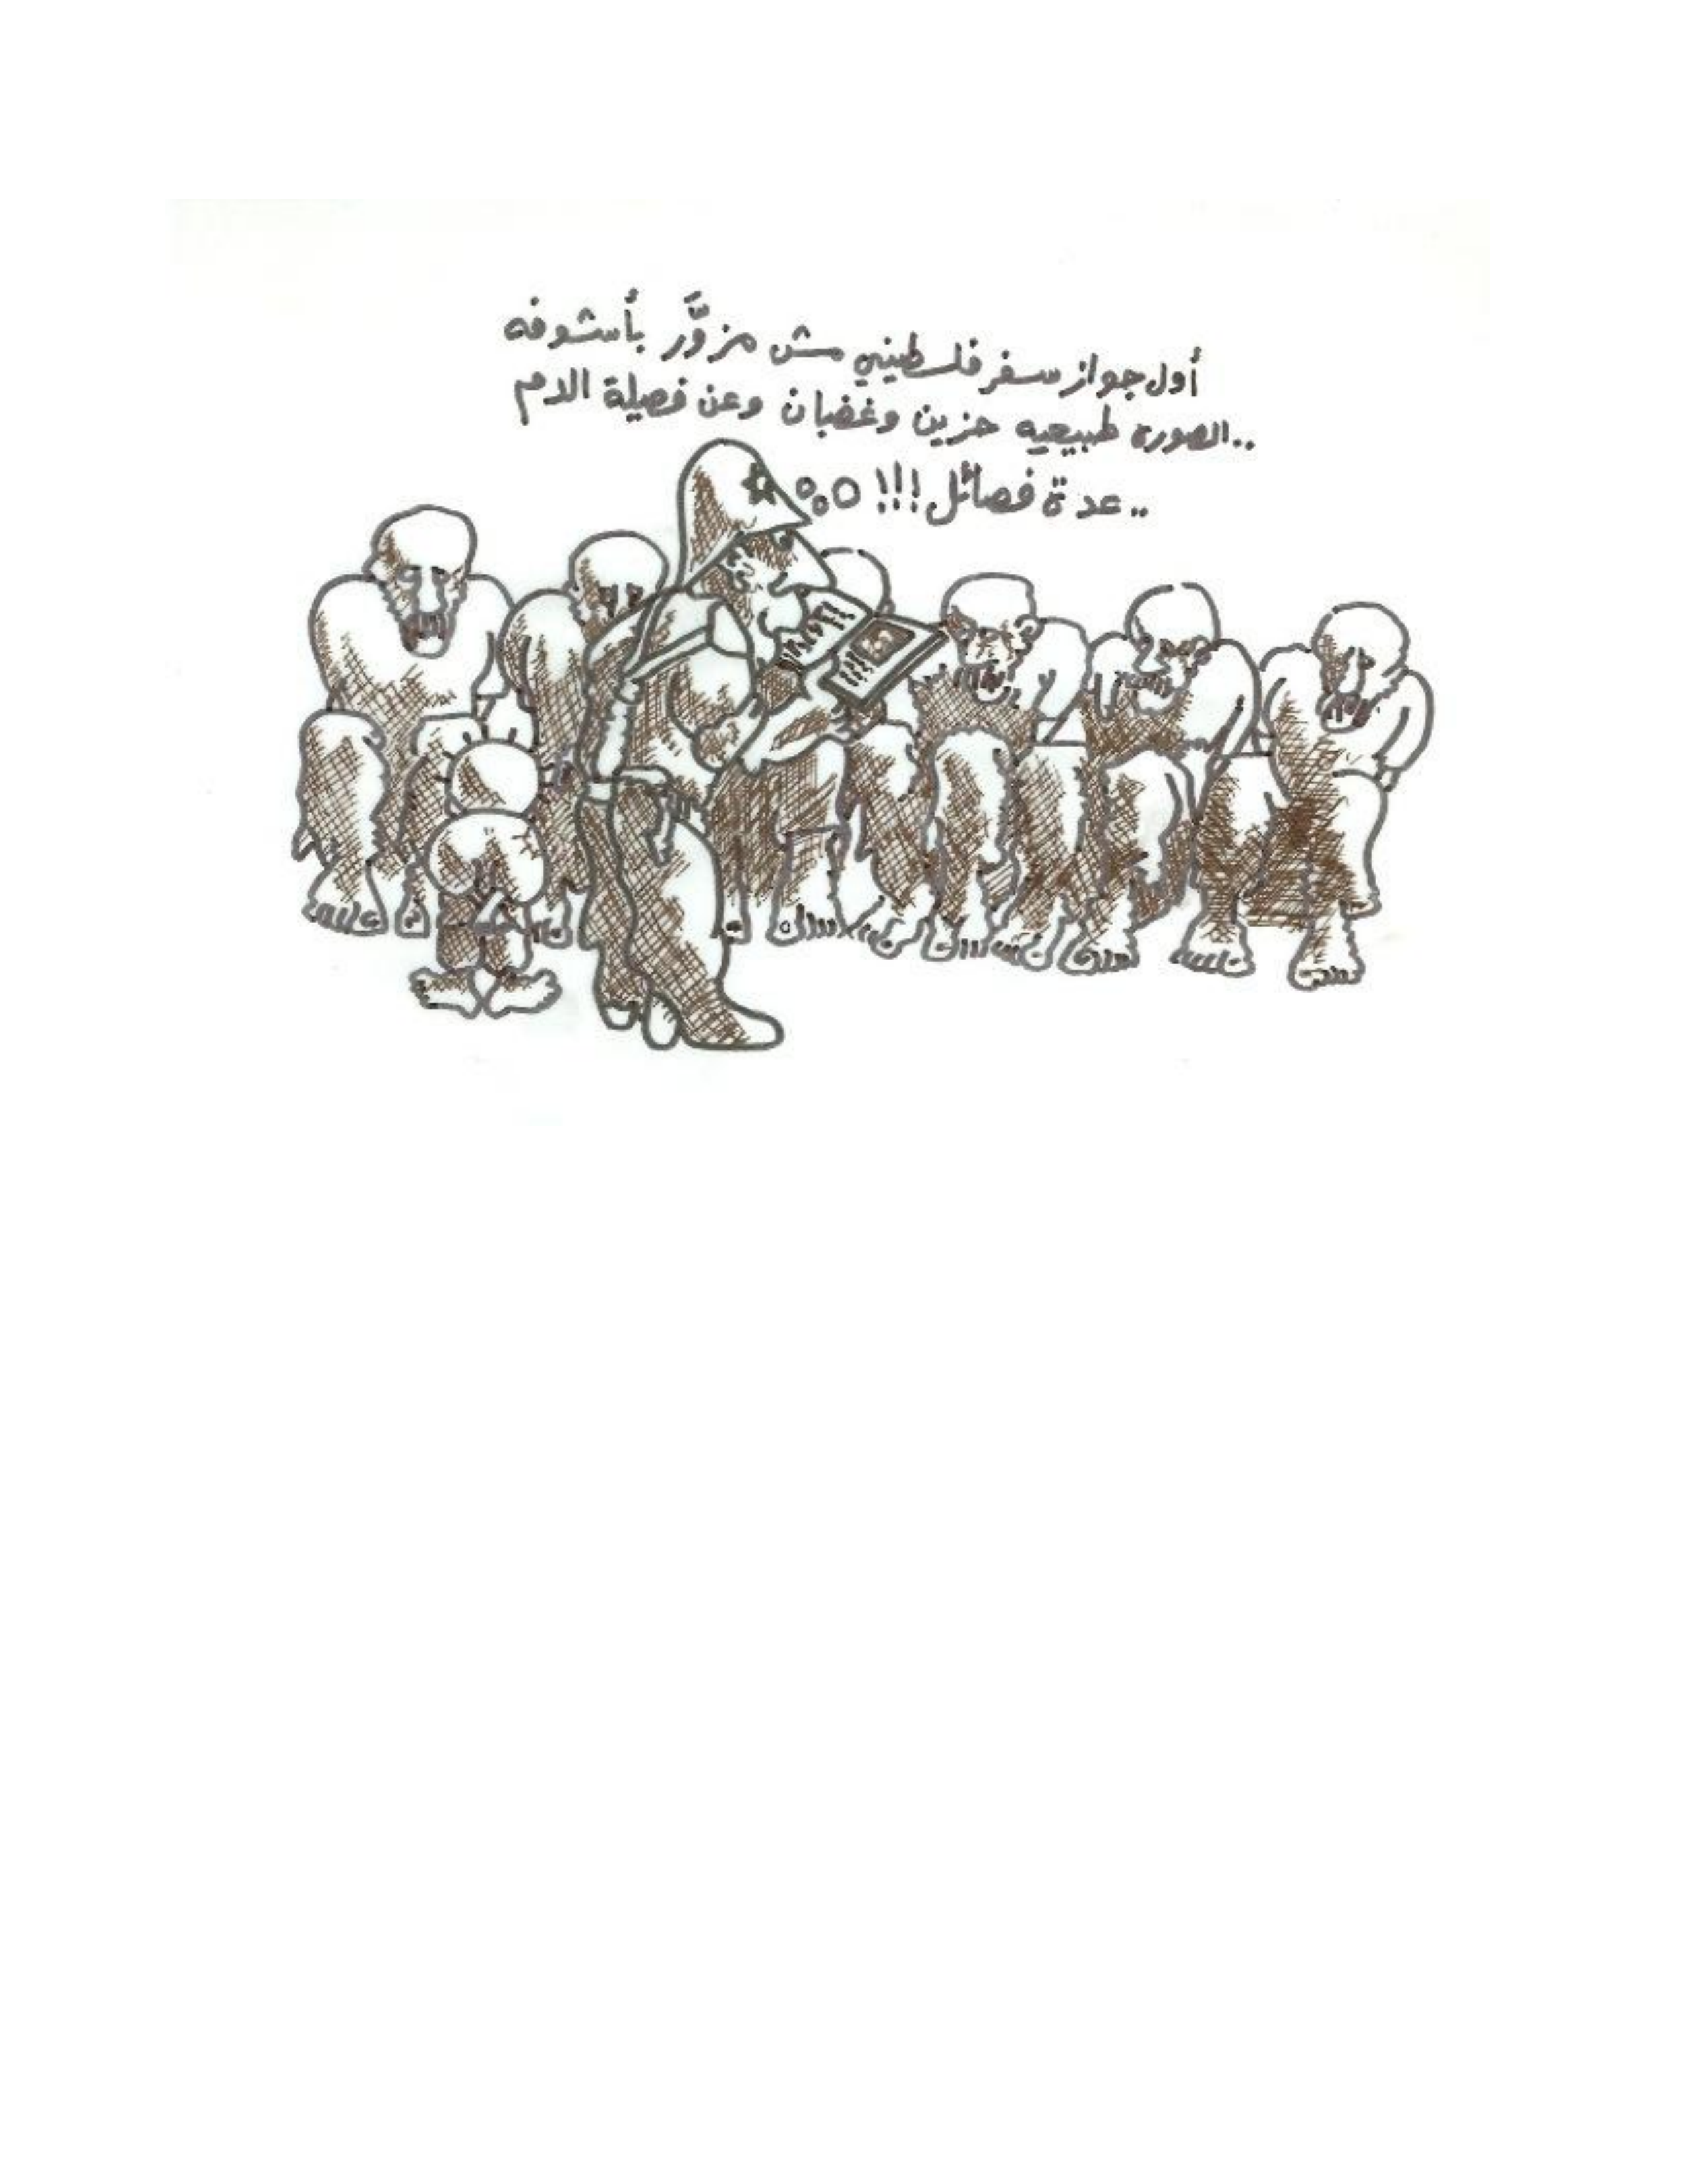 أول جواز سفر فلسطيني مش مزوَّر بأشوفه
..الصوره طبيعيه حزين وغضبان وعن فصيلة الدم
..عدة فصائل!!!